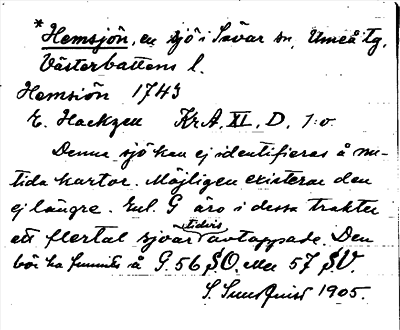 * Hemsjön, en sjö i Sävar sn, Umeå tg,
Västerbottens l.
Hemsiön 1743
E. Hackzell KrA, XI, D, 1:o
Denna sjö kan ej identifieras å nu-
tida kartor. Möjligen existerar den
ej längre. Enl. G äro i dessa trakter
ett flertal sjöar tidvis avtappade. Den
bör ha funnits å G. 56 S.O. eller 57 S.V.
S. Sundquist 1905.